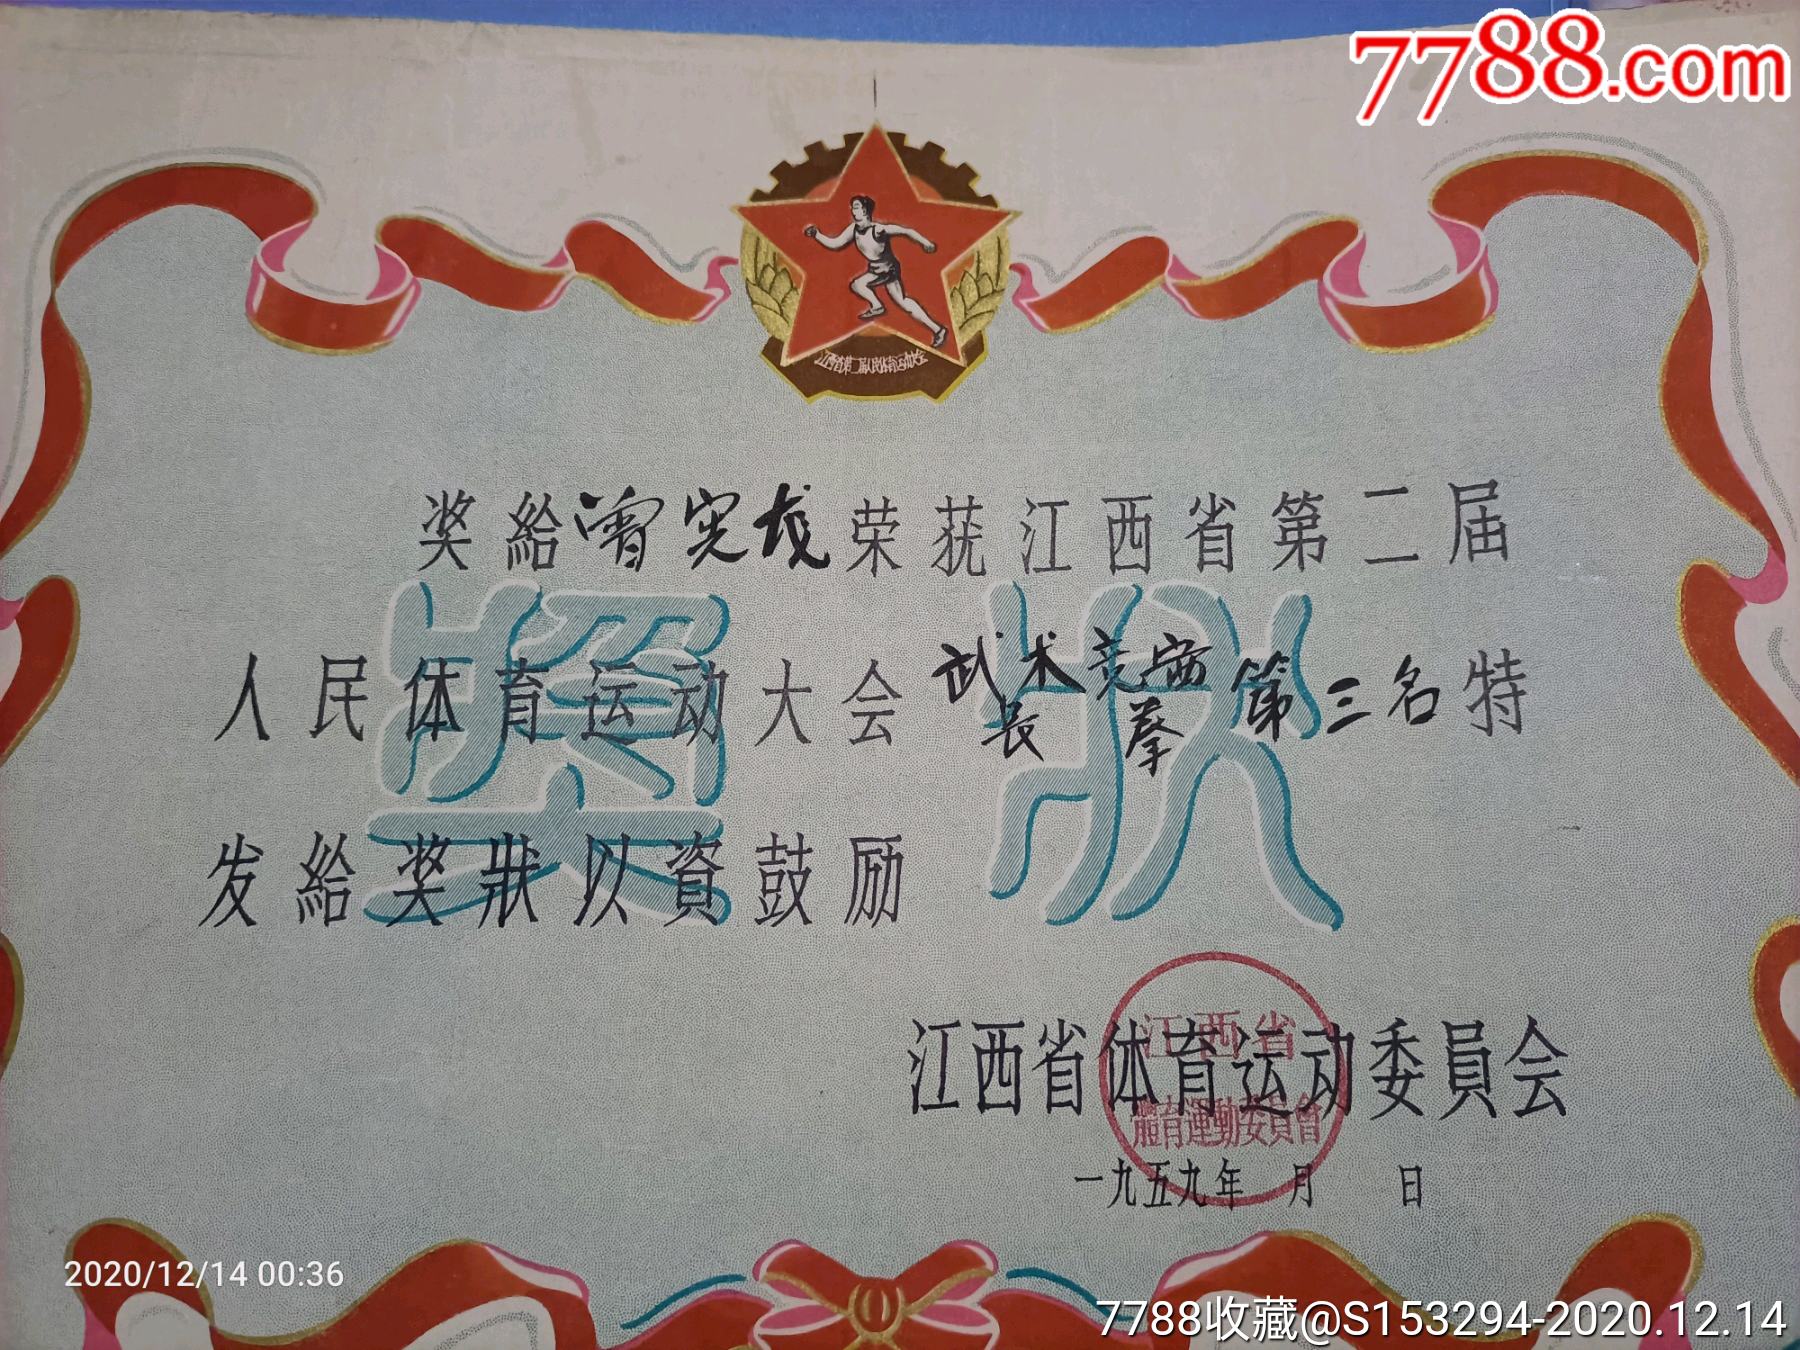 7788.com
江西省第二届人民体育运动大会
奖給曾宪茂荣获江西省第二届
人民体育运动大会武术竞赛第三名特
长拳
发給奖狀以資鼓励
奖狀
江西省体育运动委員会
江西省
體育運動委員會
一九五九年 月 日
2020/12/14 00:36
7788收藏@S153294-2020.12.14